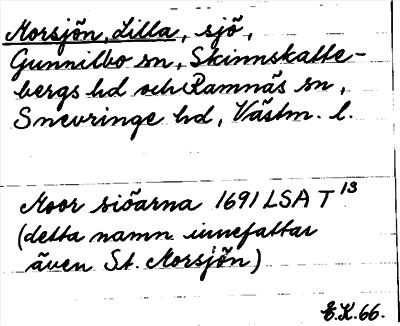 Morsjön, Lilla, sjö,
Gunnilbo sn, Skinnskatte-
bergs hd och Ramnäs sn,
Snevringe hd, Västm. l.
Moor siöarna 1691 LSA T 13
(detta namn innefattar
även St. Morsjön)
E.K.66.